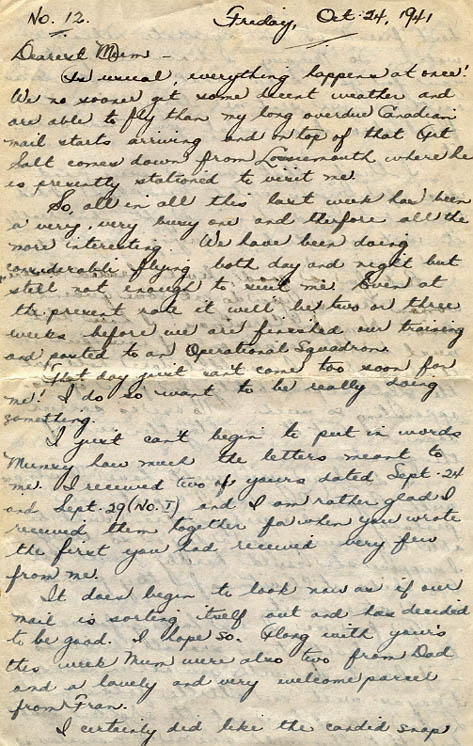 No. 12. Friday, Oct. 24, 1941
Dearest Mum -
As usual, everything happens at once!
We no sooner get some decent weather and
are able to fly than my long overdue Canadian
mail starts arriving and on top of that Art
Salt comes down from Lossiemouth where he
is presently stationed to visit me.
So, all in all this last week has been
a very, very busy one and therfore all the
more interesting. We have been doing
considerable flying both day and night but
still not enough to suit me. Even at
the present rate it will be two or three
weeks before we are finished our training
and posted to an Operational Squadron.
That day just can't come too soon for
me! I do so want to be really doing
something.
I just can't begin to put in words
how much the letters meant to
me. I received two of yours dated Sept. 24
and Sept. 29 (No. I) and I am rather glad I
received them together for when you wrote
the first you had received very few
from me.
It does begin to look now as if our
mail is sorting itself out and has decided
to be good. I hope so. Along with your's
this week Mum were also two from Dad
and a lovely and very welcome parcel
from Fran.
I certainly did like the candid snap